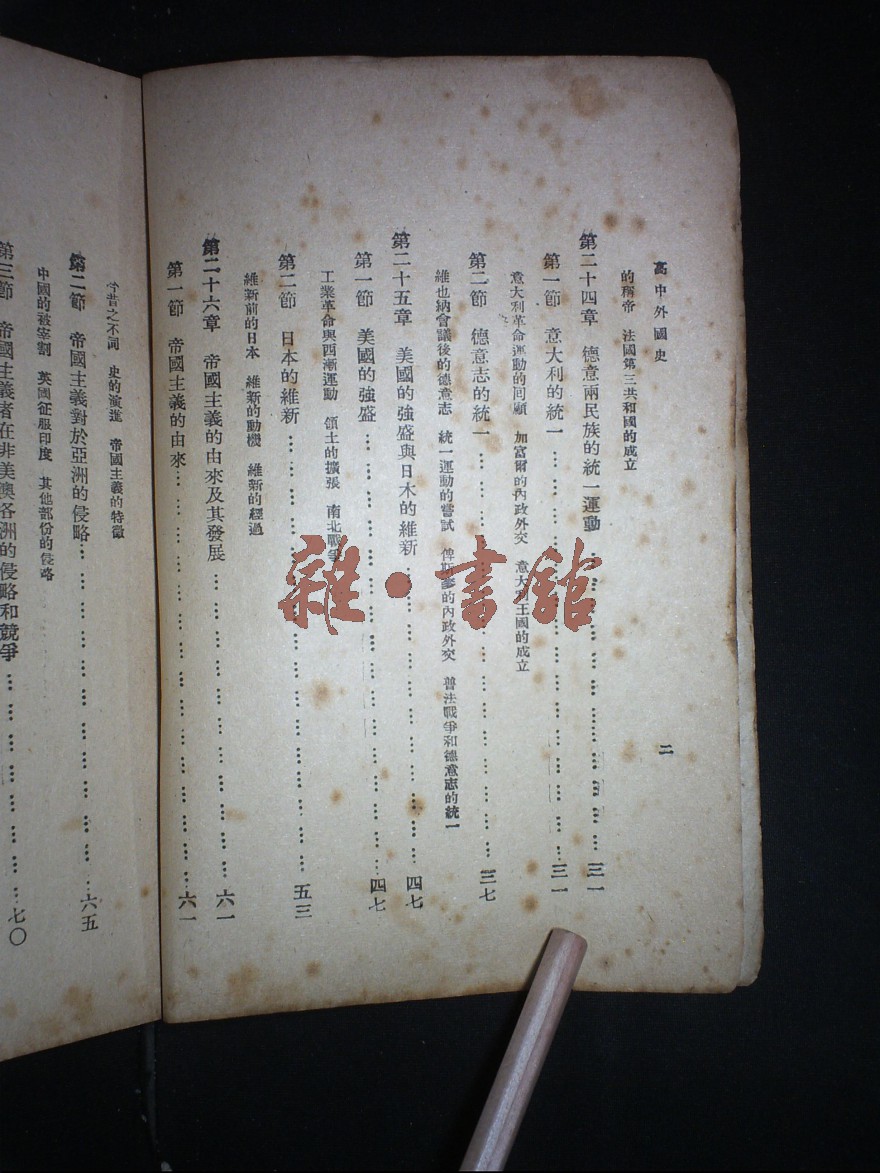 高中外國史
二
的稱帝　法國第三共和國的成立
第二十四章　德意兩民族的統一運動………………………三一
第一節　意大利的統一………………………三一
意大利革命運動的回顧　加富爾的內政外交　意大利王國的成立
第二節　德意志的統一………………………三七
維也納會議後的德意志　統一運動的嘗試　俾斯麥的內政外交　普法戰爭和德意志的統一
第二十五章　美國的強盛與日本的維新………………………四七
第一節　美國的強盛………………………四七
工業革命與西漸運動　領土的擴張　南北戰爭
第二節　日本的維新………………………五三
維新前的日本　維新的動機　維新的經過
第二十六章　帝國主義的由來及其發展………………………六一
第一節　帝國主義的由來………………………六一
今昔之不同　史的演進　帝國主義的特徵
第二節　帝國主義對於亞洲的侵略………………………六五
中國的被宰割　英國征服印度　其他部份的侵略
第三節　帝國主義者在非美澳各洲的侵略和競爭………………………七〇
雜·書館